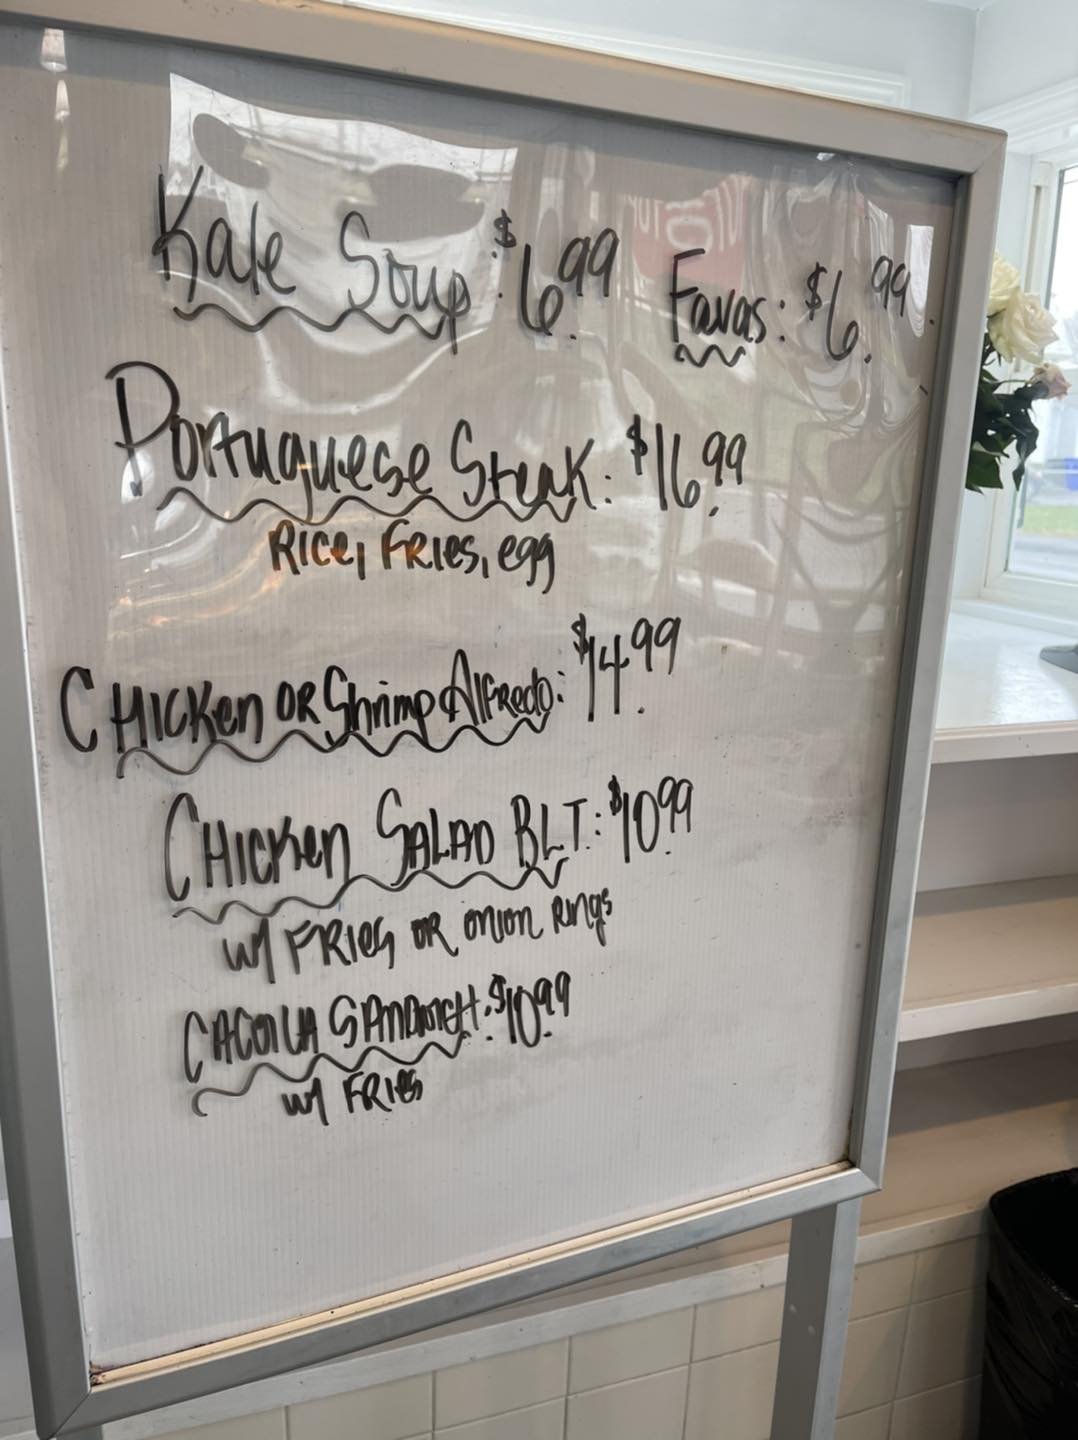 Kale Soup: $6.99 Favas: $6.99
Portuguese Steak: $16.99
Rice, Fries, egg
Chicken or Shrimp Alfredo: $14.99
Chicken Salad BLT: $10.99
w/ Fries or onion rings
Cacoila Sandwich: $10.99
w/ Fries